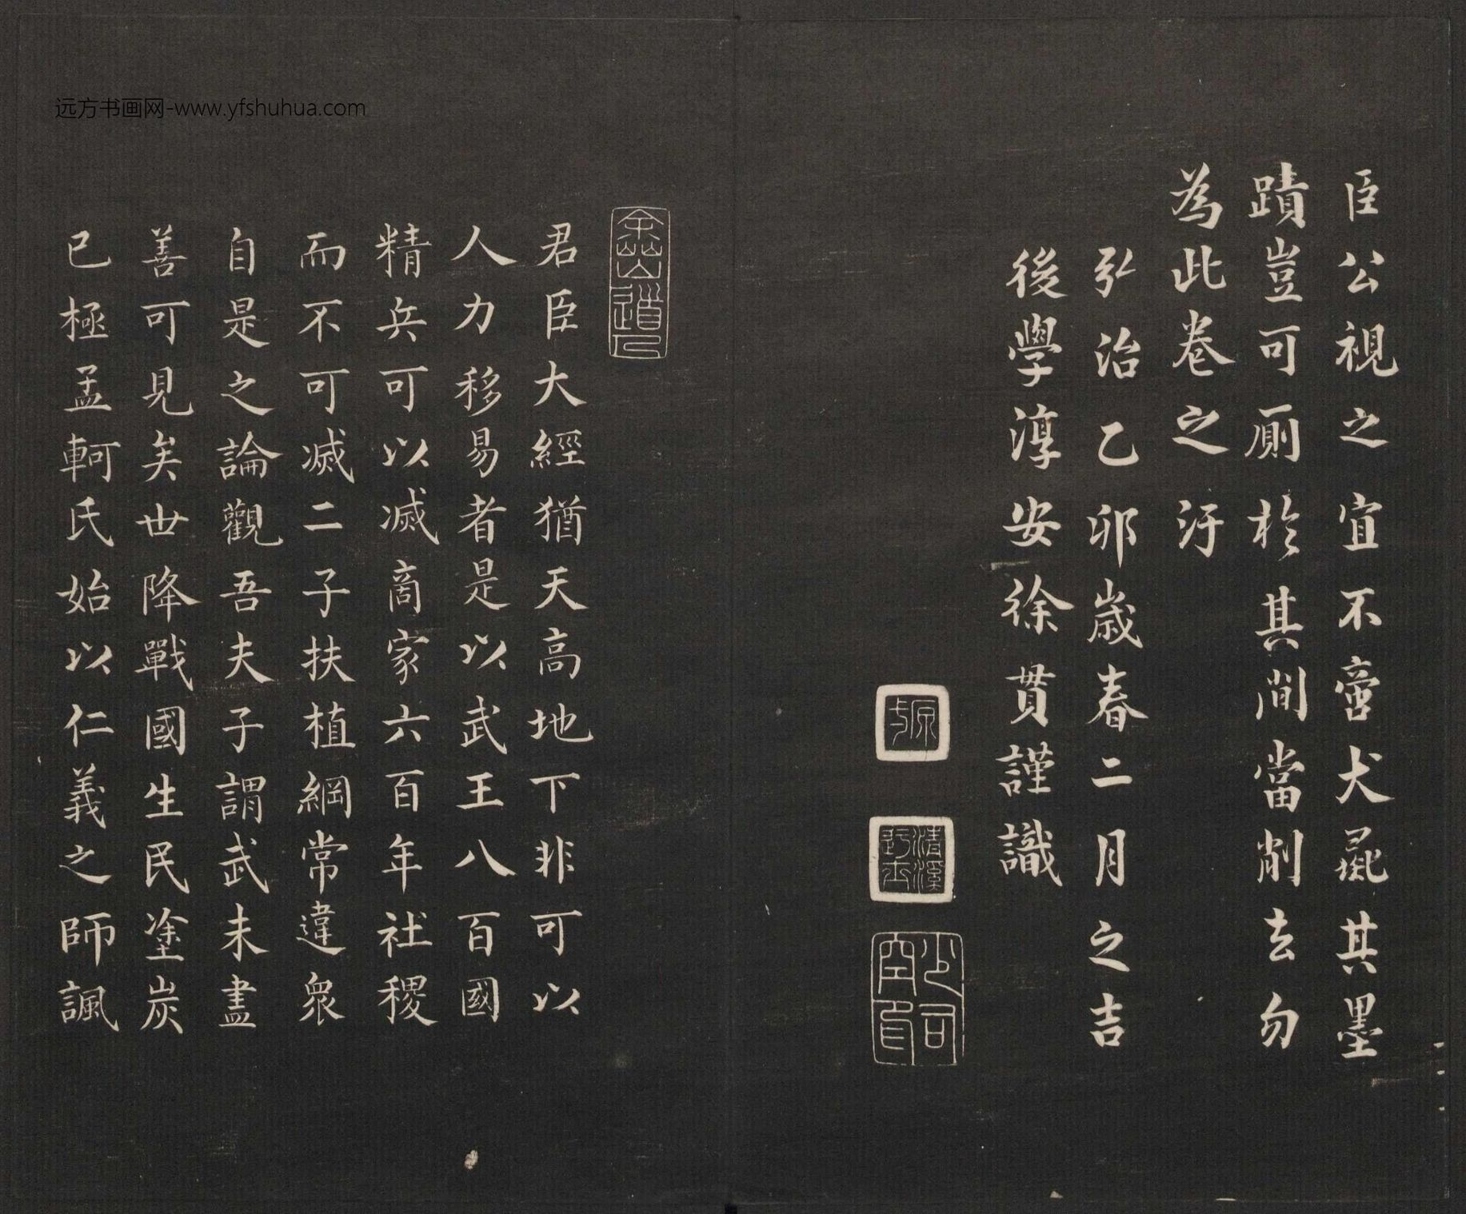 臣公視之宜不啻犬彘其墨
蹟豈可厠於其間當削去勿
為此卷之汙
弘治乙卯歲春二月之吉
後學淳安徐貫謹識
少司空印
君臣大經猶天高地下非可以
人力移易者是以武王八百國
精兵可以滅商家六百年社稷
而不可滅二子扶植綱常違衆
自是之論觀吾夫子謂武未盡
善可見矣世降戰國生民塗炭
已極孟軻氏始以仁義之師諷
远方书画网-www.yfshuhua.com